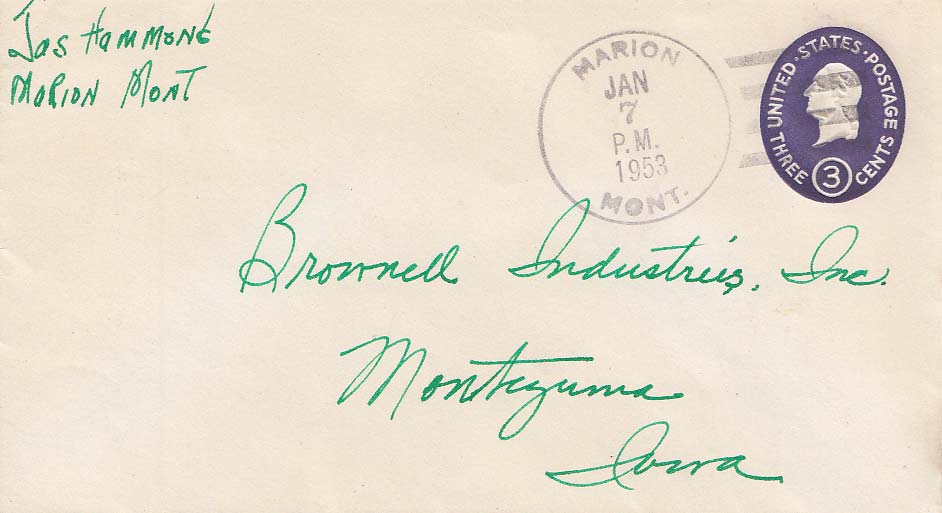 Jas Hammond
Marion Mont
MARION
JAN
7
P.M.
1953
MONT.
UNITED·STATES·POSTAGE
THREE 3 CENTS
Brownell Industries, Inc.
Montezuma
Iowa